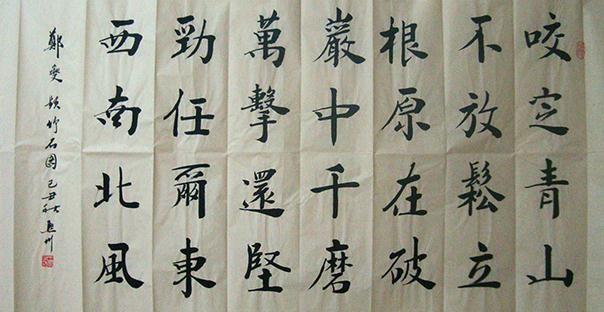 咬定青山
不放鬆立
根原在破
巖中千磨
萬擊還堅
勁任爾東
西南北風
鄭燮題竹石圖己丑秋